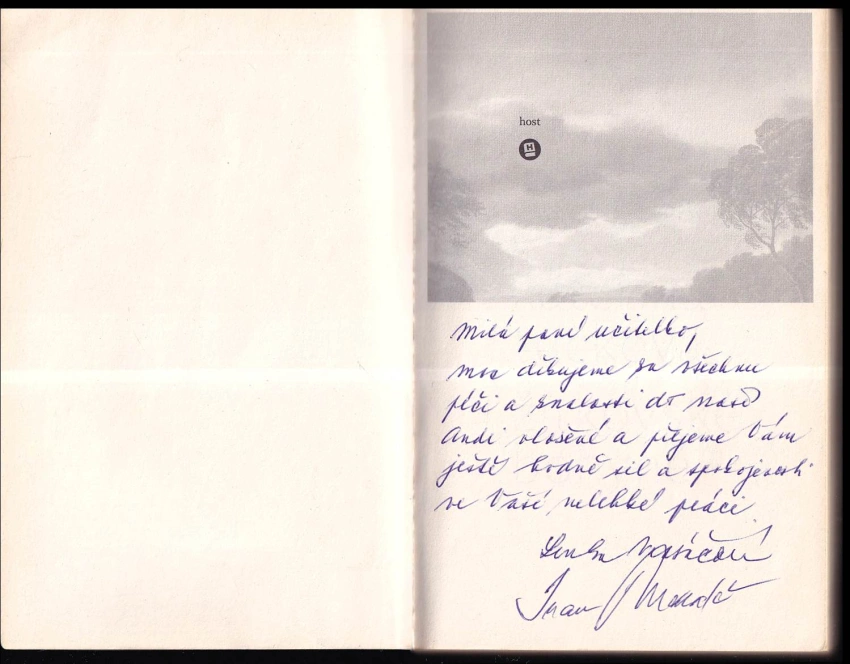 host
H
Milá paní učitelko,
moc děkujeme za všechnu
péči a znalosti do naší
Andi vložené a přejeme Vám
ještě hodně sil a spokojenosti
ve Vaší nelehké práci
Lenka
Ivan